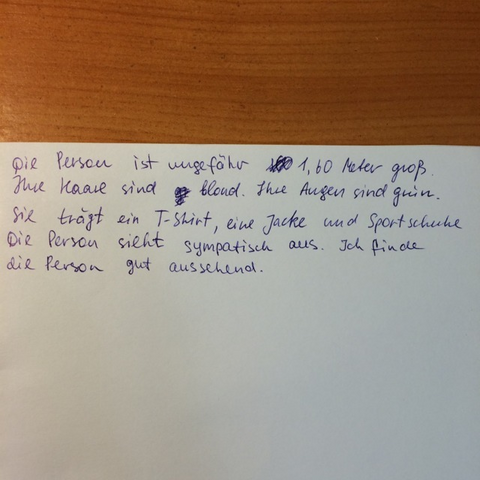 Die Person ist ungefähr 1,60 Meter groß.
Ihre Haare sind blond. Ihre Augen sind grün.
Sie trägt ein T-Shirt, eine Jacke und Sportschuhe
Die Person sieht sympatisch aus. Ich finde
die Person gut aussehend.